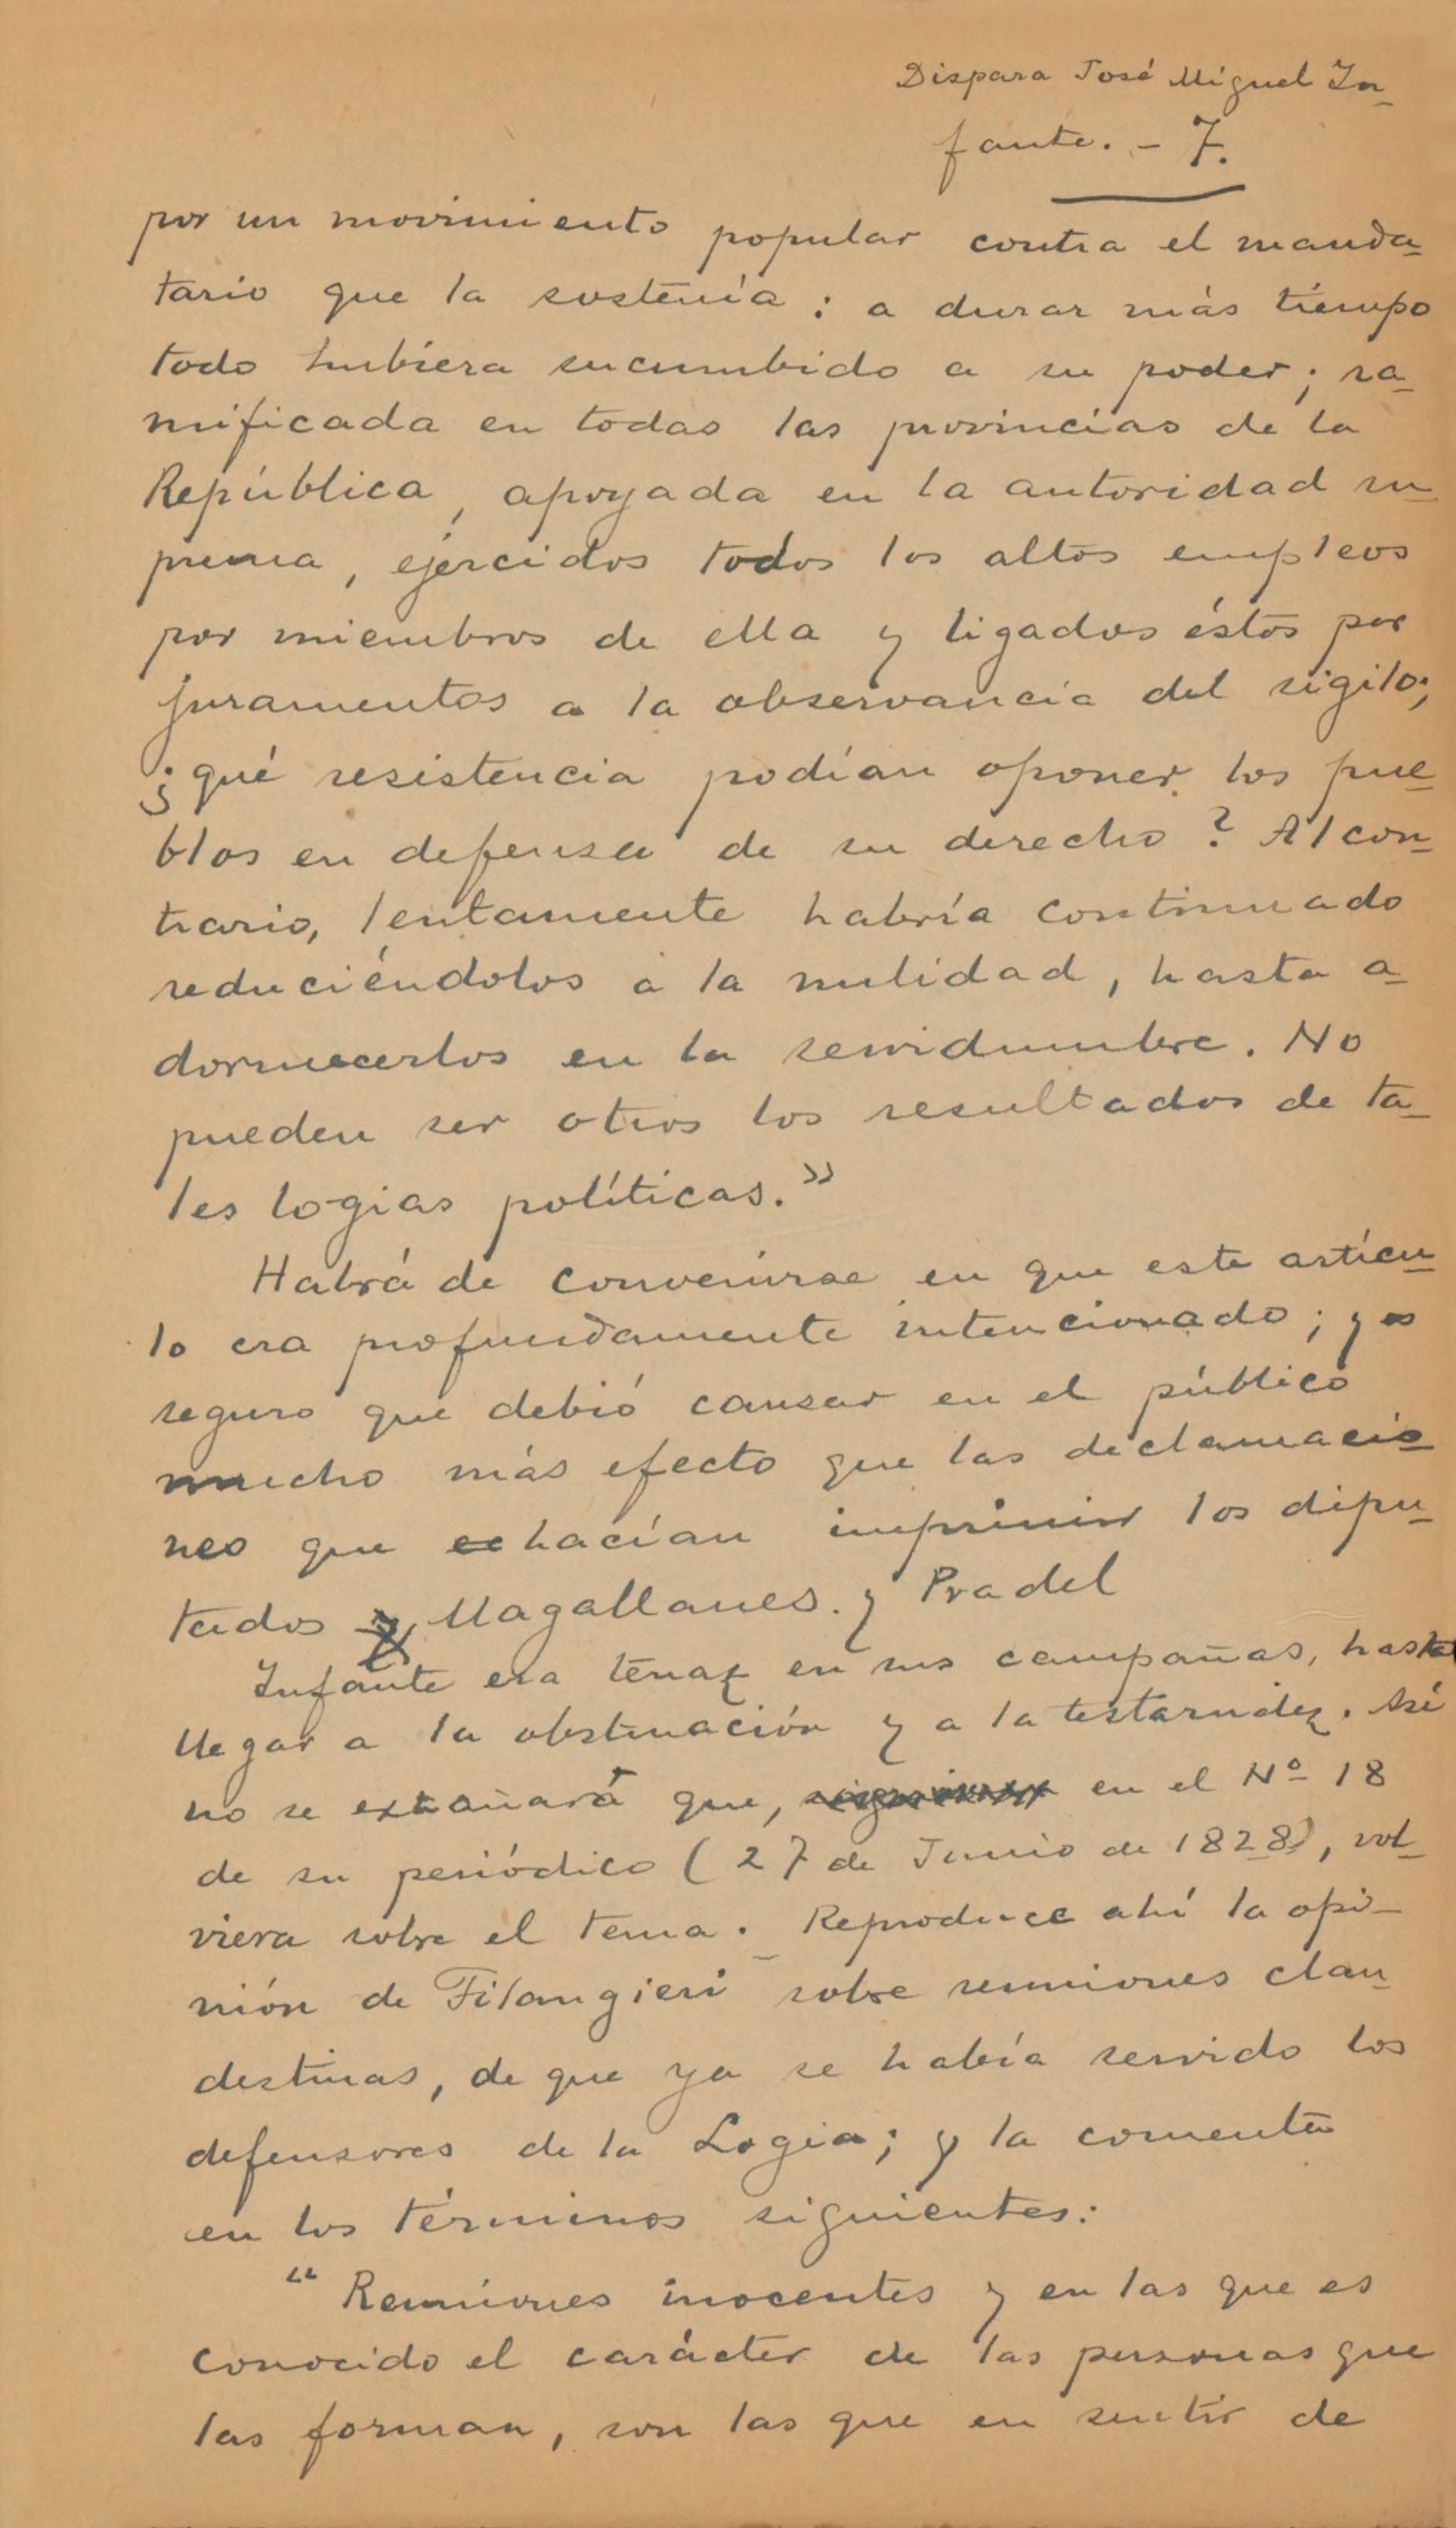 Dispara José Miguel In-
fante. - 7.
por un movimiento popular contra el manda-
tario que la sostenía: a durar más tiempo
todo hubiera sucumbido a su poder; ra-
mificada en todas las provincias de la
República, apoyada en la autoridad su-
prema, ejercidos todos los altos empleos
por miembros de ella y ligados éstos por
juramentos a la observancia del sigilo;
¿qué resistencia podían oponer los pue-
blos en defensa de su derecho? Al con-
trario, lentamente habría continuado
reduciéndolos a la nulidad, hasta a-
dormecerlos en la servidumbre. No
pueden ser otros los resultados de ta-
les logias políticas.»
Habrá de convenirse en que este artícu-
lo era profundamente intencionado; y es
seguro que debió causar en el público
mucho más efecto que las declamacio-
nes que hacían imprimir los dipu-
tados Magallanes y Pradel
Infante era tenaz en sus campañas, hasta
llegar a la obstinación y a la testarudez. Así
no se extrañará que, en el Nº 18
de su periódico (27 de Junio de 1828), vol-
viera sobre el tema. Reproduce ahí la opi-
nión de Filangieri sobre reuniones clan-
destinas, de que ya se había servido los
defensores de la Logia; y la comenta
en los términos siguientes:
“Reuniones inocentes y en las que es
conocido el carácter de las personas que
las forman, son las que en sentir de